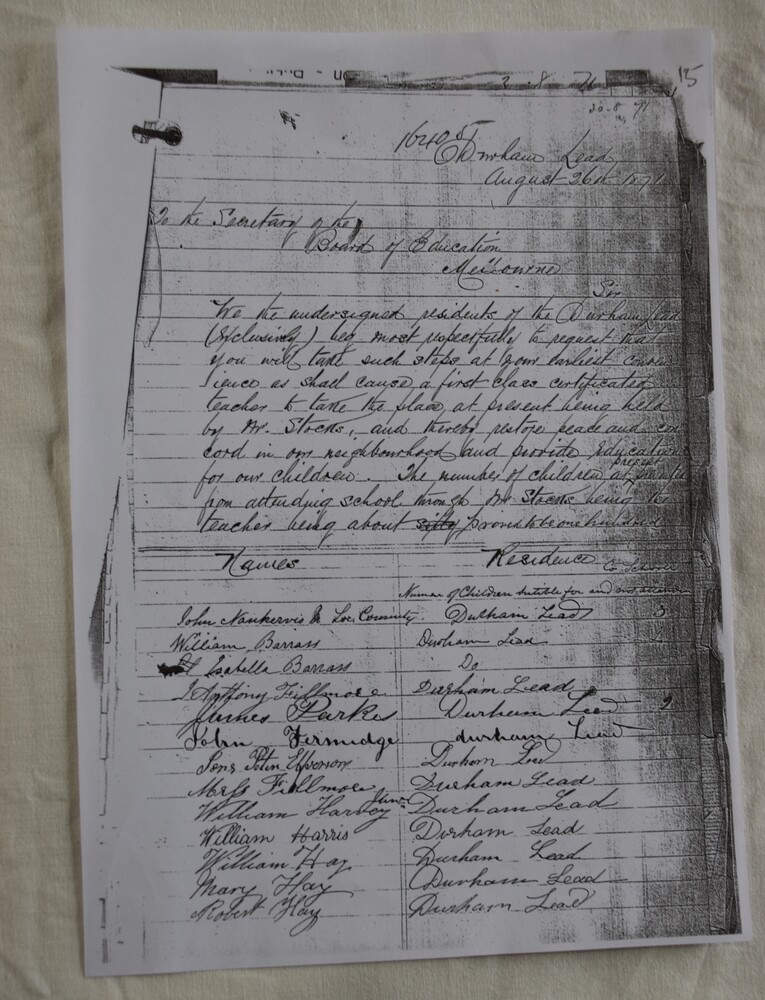 15
2 . 8 . 71
20-8 71
16405
Durham Lead
August 26th 1871
To the Secretary of the
Board of Education
Melbourne
Sir
We the undersigned residents of the Durham Lead
(Exclusively) beg most respectfully to request that
you will take such steps at your earliest conve
ience as shall cause a first class certificated
teacher to take the place at present being held
by Mr. Stocks, and thereby restore peace and con
cord in our neighbourhood and provide Education
for our children. The number of children at present
from attending school through Mr Stocks being the
teacher being about sixty proves to be one hundred
Names Residence
Number of Children suitable for and not attending
John Nankervis Durham Lead 3
William Barrass Durham Lead
Isabella Barrass Do
Anthony Fillmore Durham Lead
James Parke Durham Lead 2
John Firmidge durham Lead
Durham Lead
Mrs Fillmore Durham Lead
William Harvey Junr Durham Lead
William Harris Durham Lead
William Hay Durham Lead
Mary Hay Durham Lead
Robert Hay Durham Lead